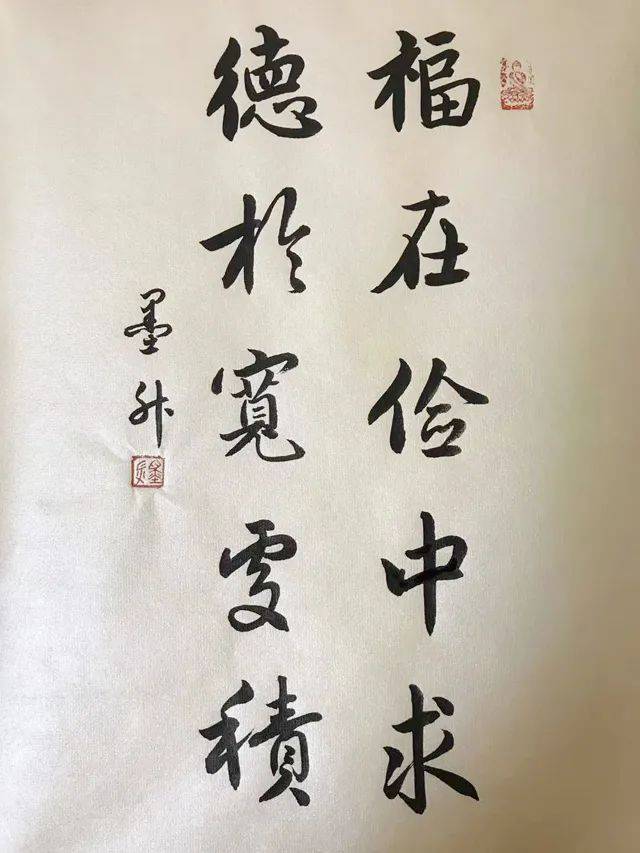 福在俭中求
德於寬處積
墨升